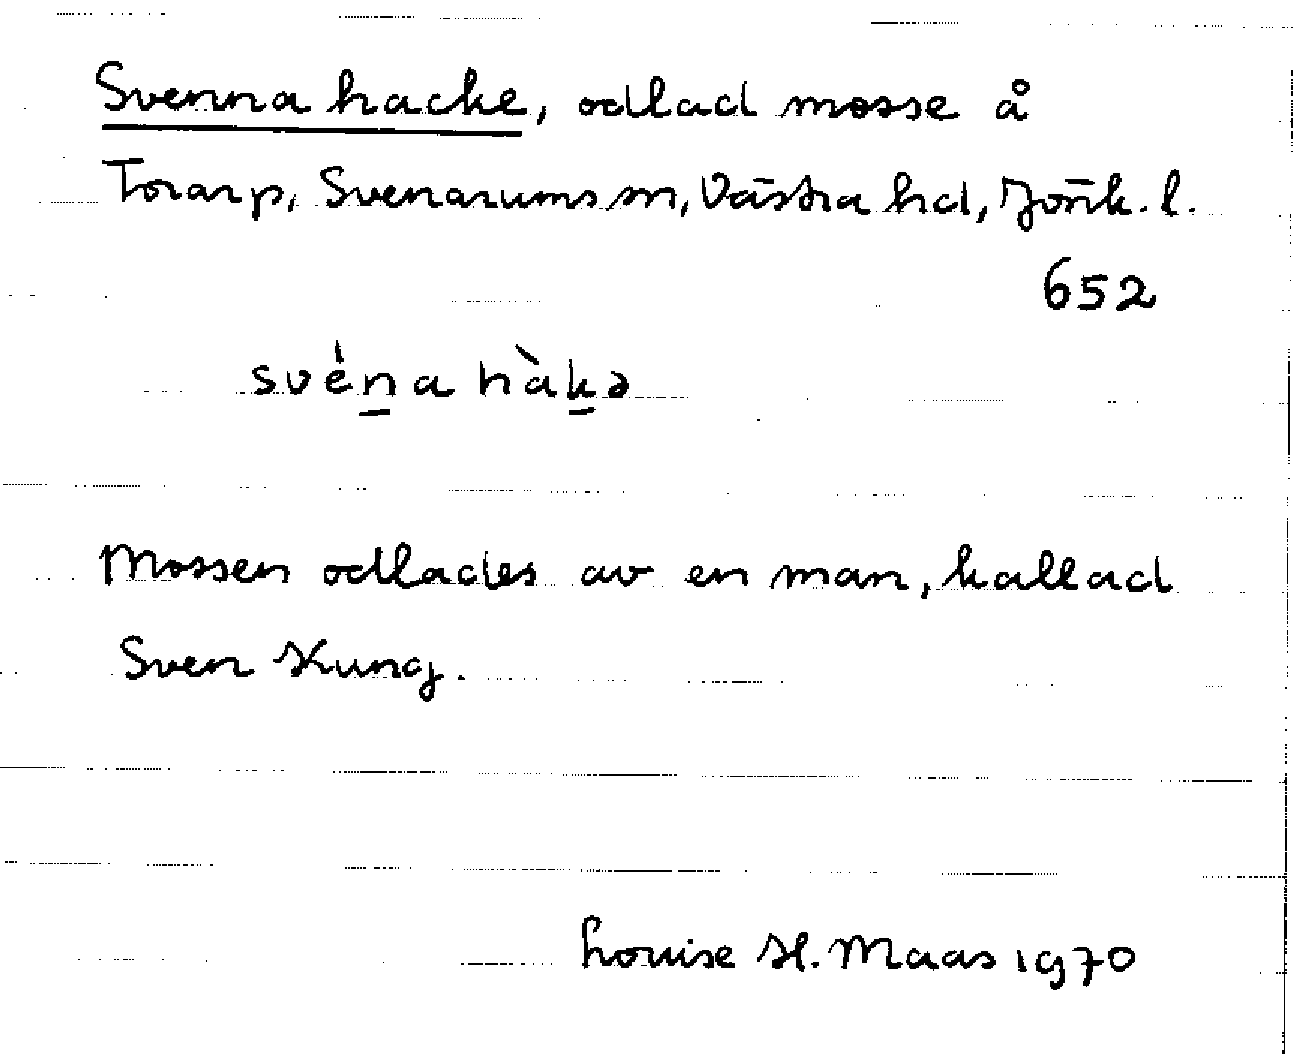 Svenna hacke, odlad mosse å
Torarp, Svenarums sn, Västra hd, Jönk. l.
652
svèn̲a hàk̲ə
Mossen odlades av en man, kallad
Sven Kung.
Louise H. Maas 1970